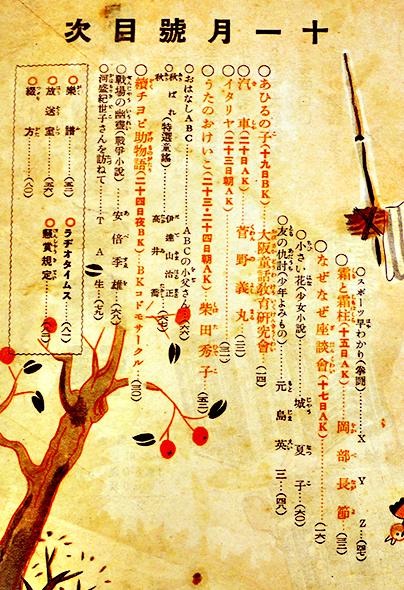 十一月號目次
○スポーツ早わかり(拳鬪)……X Y Z…(四七)
○霜と霜柱(十五日AK)……岡部長節…(三二)
○なぜなぜ座談會(十七日AK)……(一六)
○小さい花(少女小說)……城夏子…(六〇)
○友の仇討(少年よみもの)……元島英三…(四八)
○あひるの子(十九日BK)……大阪童話教育研究會…(一四)
○汽車(二十日AK)……菅野義丸…(三一)
○イタリヤ(二十三日朝AK)……
○うたのおけいこ(二十三・二十四日朝AK)……柴田秀子…(五三)
○おはなしABC……ABCの小父さん…(六八)
○秋ばれ(特選童謠)……伊達山治正
○秋……高井喬…(六七)
○續チヨビ助物語(二十四日夜BK)……BKコドモサークル…(三〇)
○戰場の幽靈(戰爭小說)……安倍季雄…(六六)
○河盛紀世子さんを訪ねて……T A 生…(七九)
○樂譜……(五三)
○放送室……(五六)
○綴方……(八〇)
○ラヂオタイムス……(八一)
○懸賞規定